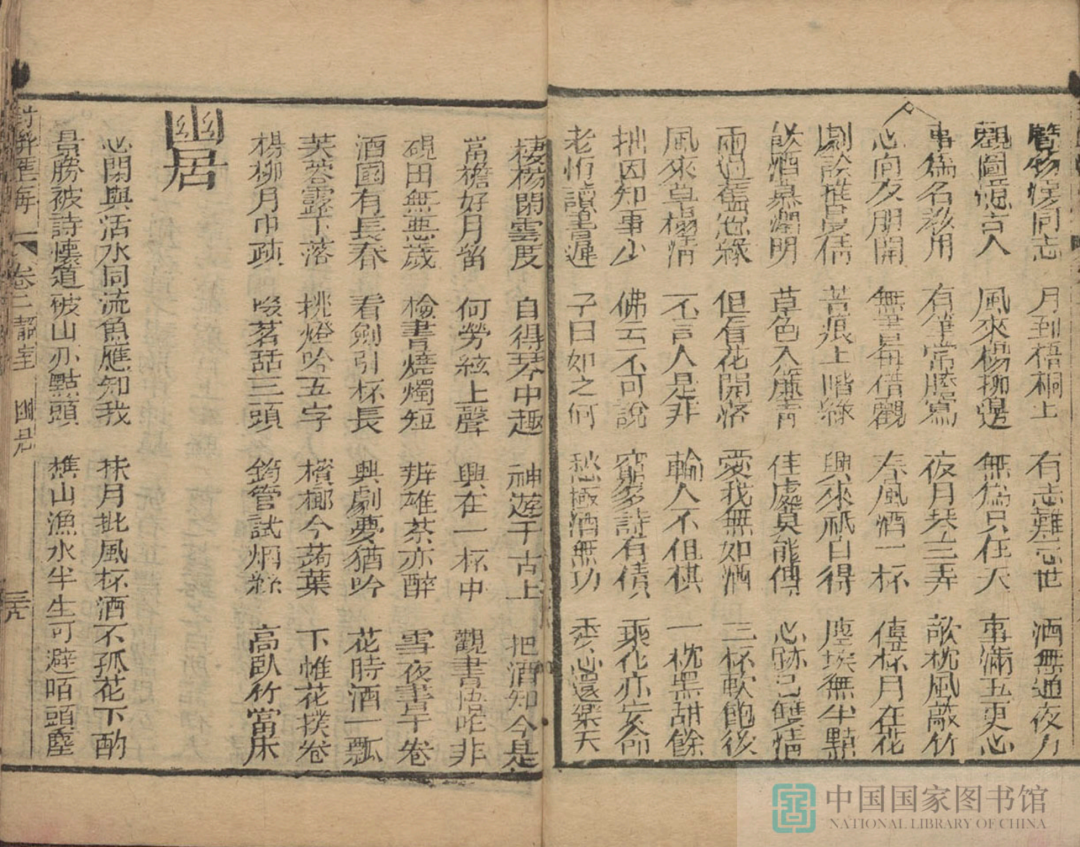 覽物懷同志　月到梧桐上　有志難忘世　酒無通夜力
觀圖憶古人　風來楊柳邊　無為只任天　事滿五更心
事為名教用　有筆常謄寫　夜月琴三弄　欹枕風敲竹
心向友朋開　無書借觀　春風酒一杯　傳杯月在花
劇談推心情　苔痕上階綠　興來祇自得　塵埃無半點
飲酒慕淵明　草色入簾青　佳處負能傳　心跡已雙清
雨過舊池綠　但看花開落　愛我無如酒　三杯軟飽後
風來草榻清　不言人是非　輸人不但棋　一枕黑甜餘
拙因知事少　佛云不可說　窮多詩有債　乘化亦安命
老恨讀書遲　子曰如之何　愁極酒無功　委心還樂天
棲楊閑雲度　自得琴中趣　神遊千古上　把酒知今是
當檐好月留　何勞絃上聲　興在一杯中　觀書悟昨非
硯田無惡歲　檢書燒燭短　辨雄茶亦醉　雪夜書千卷
酒國有長春　看劍引杯長　興劇夢猶吟　花時酒一瓢
芙蓉露下落　挑燈吟五字　檳榔今蒟葉　下帷花撲卷
楊柳月中疎　啖茗話三頭　錡管試烟絲　高臥竹當床
幽居
心閑與活水同流魚應知我　抹月批風杯酒不孤花下酌
景勝被詩懷道破山亦點頭　樵山漁水半生可避陌頭塵
卷二 靜室 幽居 三九
中国国家图书馆
NATIONAL LIBRARY OF CHINA